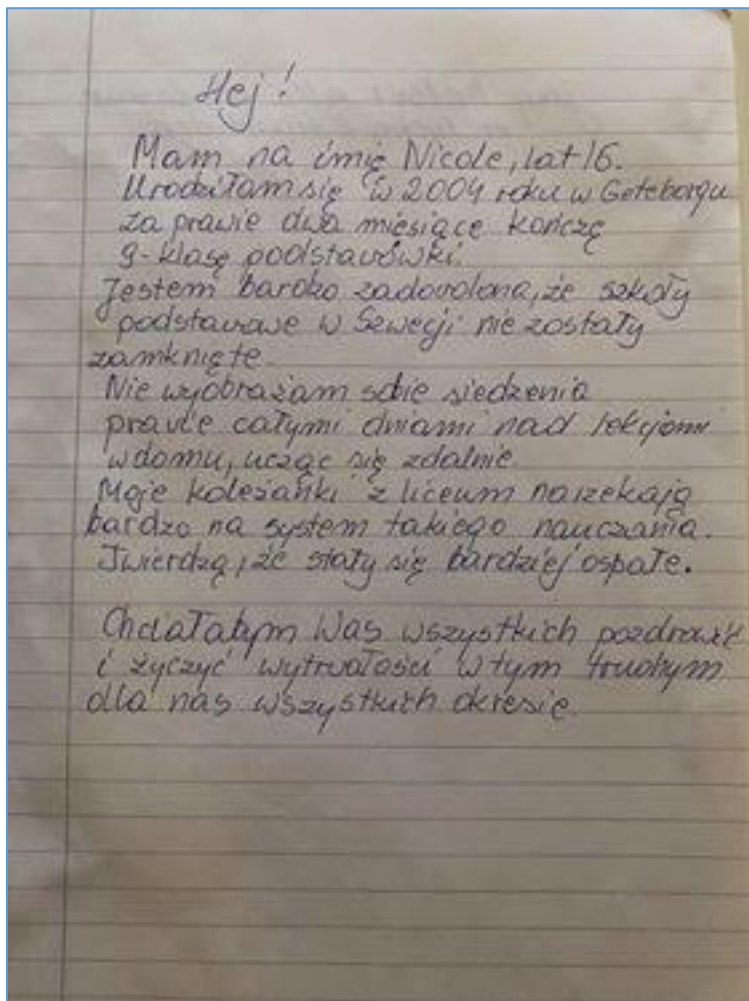 Hej!
Mam na imię Nicole, lat 16.
Urodziłam się w 2004 roku w Geteborgu
za prawie dwa miesiące kończę
9-klasę podstawówki.
Jestem bardzo zadowolona, że szkoły
podstawowe w Szwecji nie zostały
zamknięte.
Nie wyobrażam sobie siedzenia
prawie całymi dniami nad lekcjami
w domu, ucząc się zdalnie.
Moje koleżanki z liceum narzekają
bardzo na system takiego nauczania.
Twierdzą, że stały się bardziej ospałe.
Chciałabym Was wszystkich pozdrowić
i życzyć wytrwałości w tym trudnym
dla nas wszystkich okresie.